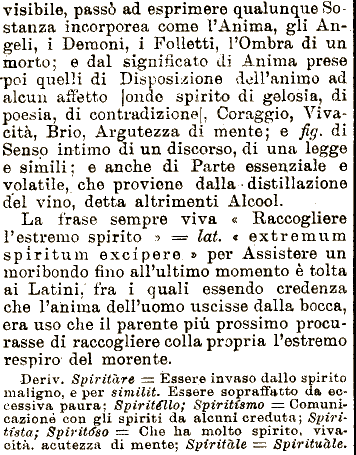 visibile, passò ad esprimere qualunque So-
stanza incorporea come l'Anima, gli An-
geli, i Demoni, i Folletti, l'Ombra di un
morto; e dal significato di Anima prese
poi quelli di Disposizione dell'animo ad
alcun affetto [onde spirito di gelosia, di
poesia, di contradizione], Coraggio, Viva-
cità, Brio, Argutezza di mente; e fig. di
Senso intimo di un discorso, di una legge
e simili; e anche di Parte essenziale e
volatile, che proviene dalla distillazione
del vino, detta altrimenti Alcool.
La frase sempre viva « Raccogliere
l'estremo spirito » = lat. « extremum
spiritum excípere » per Assistere un
moribondo fino all'ultimo momento è tolta
ai Latini, fra i quali essendo credenza
che l'anima dell'uomo uscisse dalla bocca,
era uso che il parente più prossimo procu-
rasse di raccogliere colla propria l'estremo
respiro del morente.
Deriv. Spiritàre = Essere invaso dallo spirito
maligno, e per similit. Essere sopraffatto da ec-
cessiva paura; Spiritéllo; Spiritísmo = Comuni-
cazione con gli spiriti da alcuni creduta; Spiri-
tísta; Spiritóso = Che ha molto spirito, viva-
cità, acutezza di mente; Spiritàle = Spirituàle.